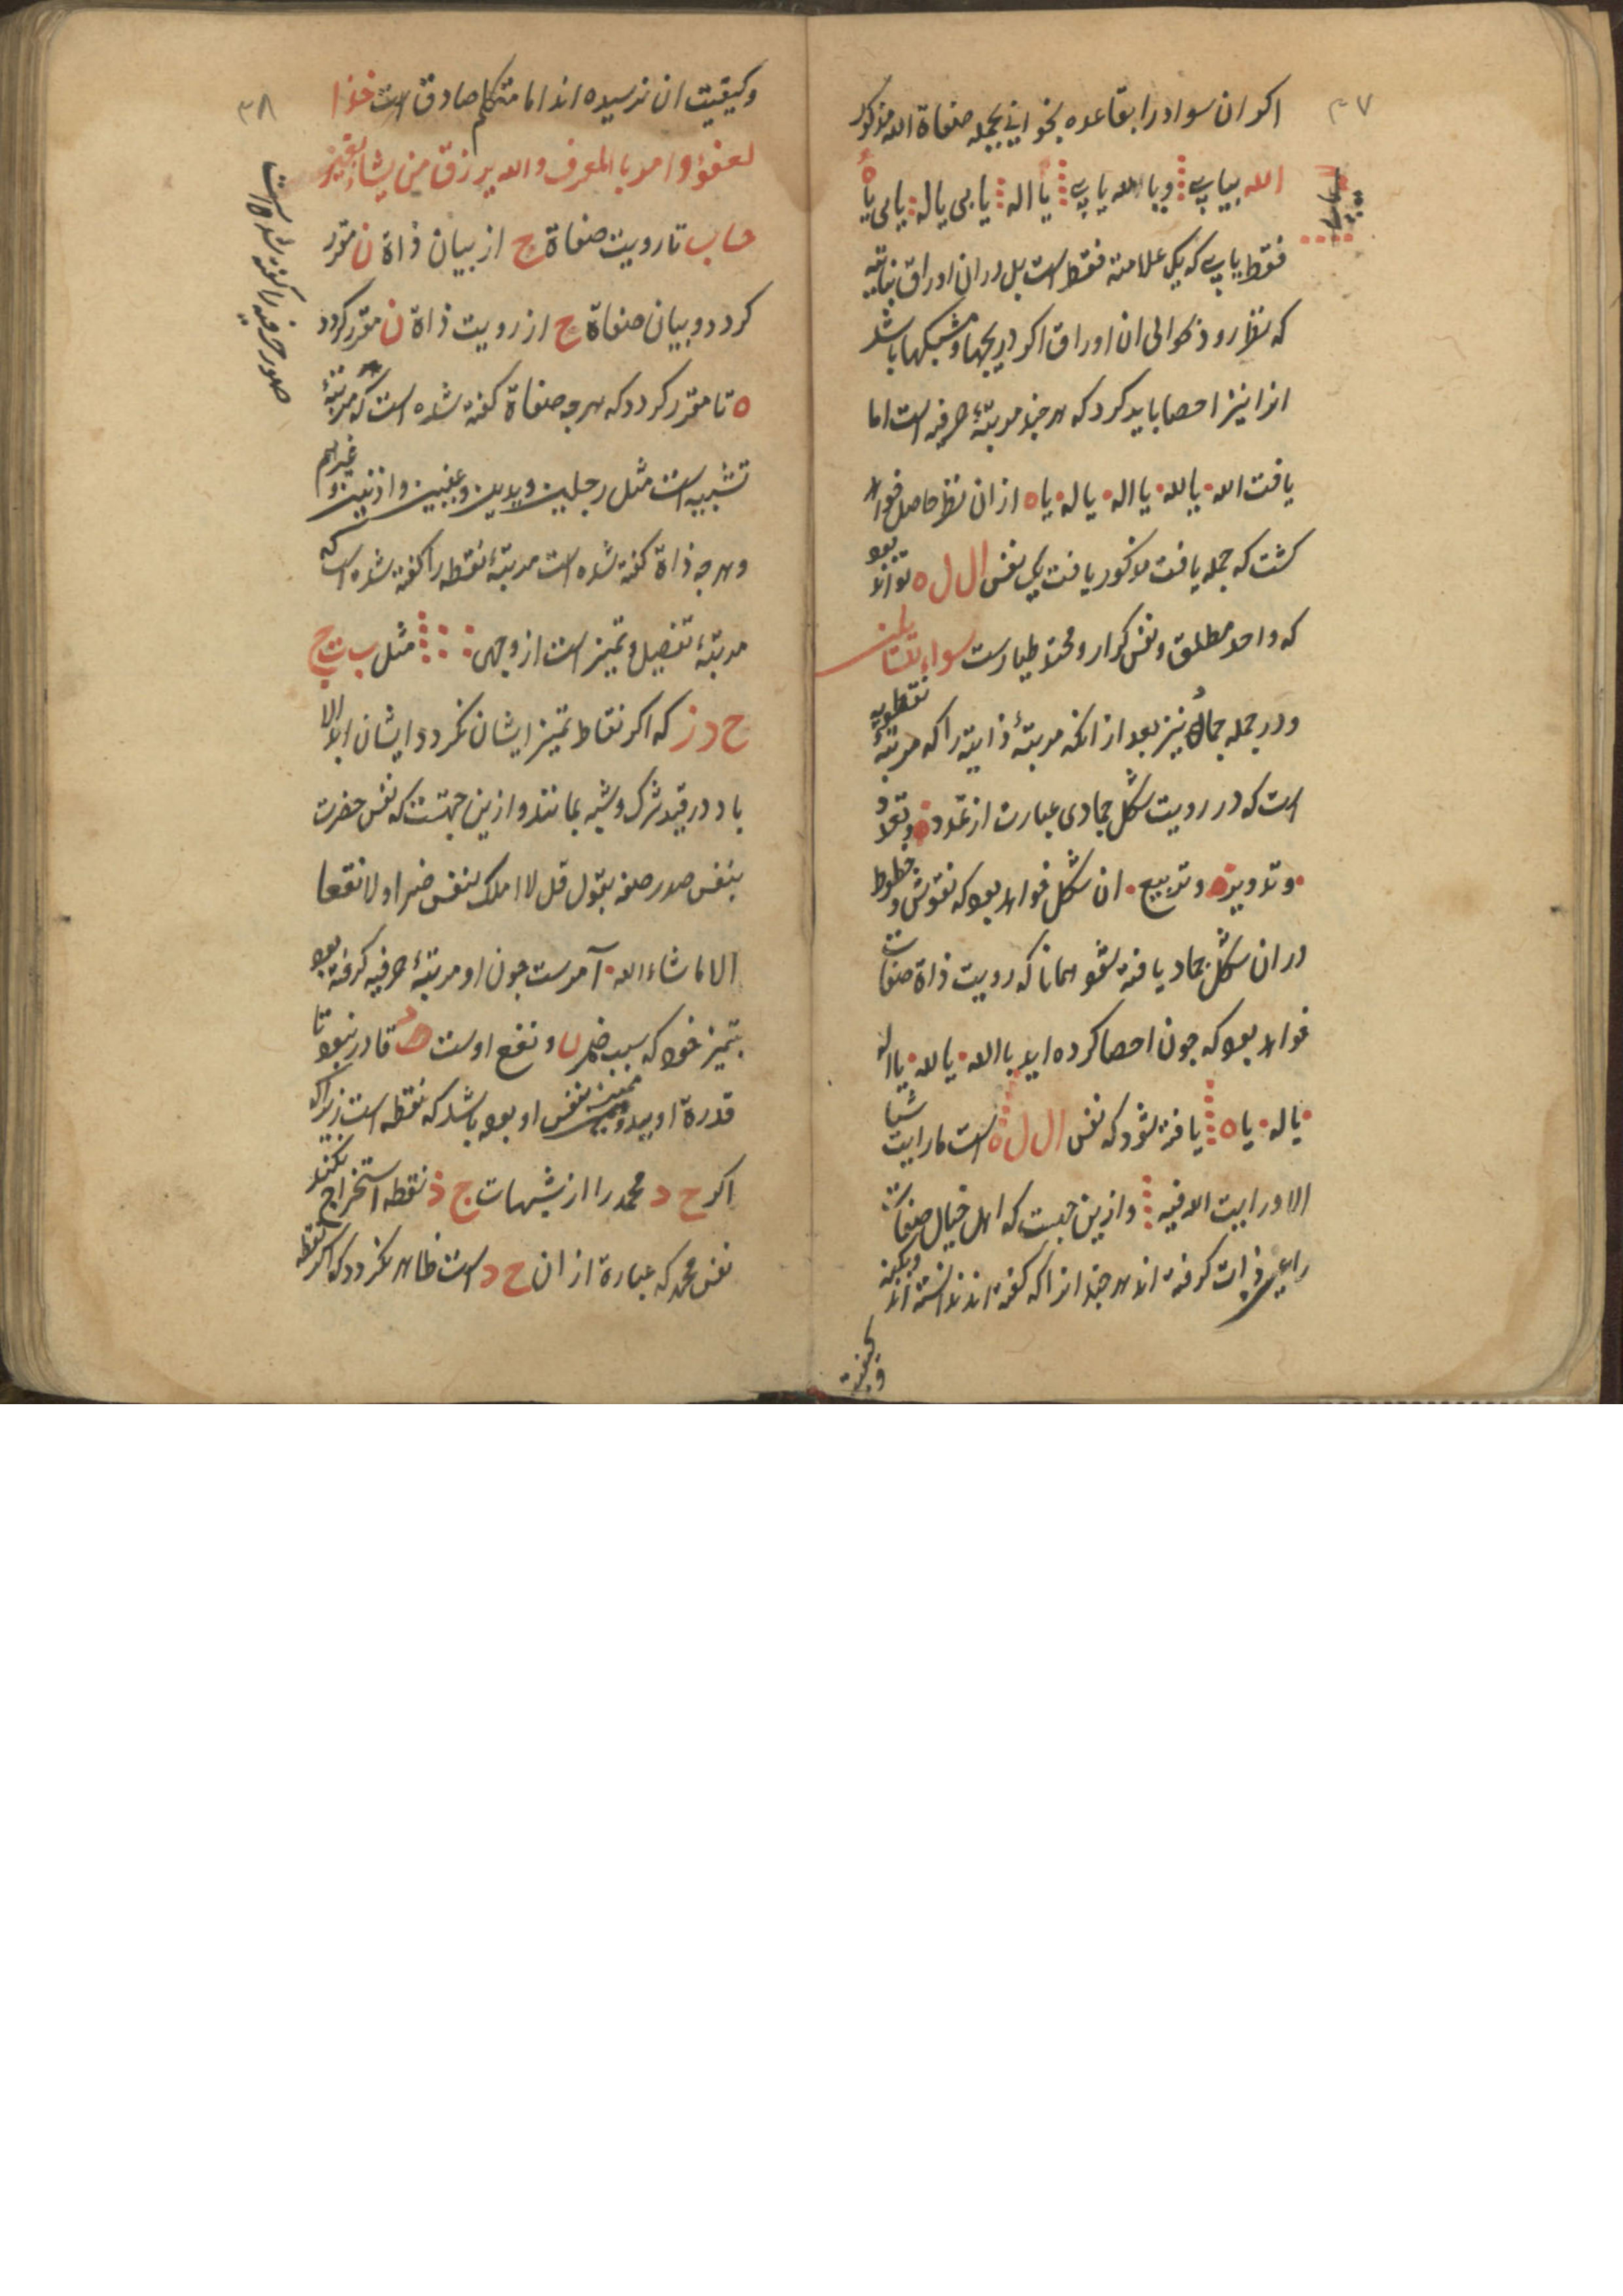 ۳۷
اکر ان سواد را بقاعده بخوانی بجمله صفاة الله مذکور
الله بیابی ویا لله یابی یا اله یابی یا له یابی یا ه
فقط یابی که یک علامته فقط است بل در ان اوراق نباتیه
که نظر و ذکر الی ان اوراق اکر دریجها و مشبکها باشد
انرا نیز احصا باید کرد که هر چند مرتبهٔ حرفیه است اما
یافت الله یا لله یا اله یا له یا ه از ان نظر حاصل خواهد
کشت که جمله یافت مذکور یافت یک نفس ال ل ه تواند بود
که واحد مطلق و نفس کرار و محمد طیارست سواء
ودر جمله جماد نیز بعد از انکه مرتبهٔ ذاتیه را که مرتبهٔ نقطویه
است که در رویت شکل جمادی عبارت از تمدد و تعدد
وتدویر و تربیع ان شکل خواهد بود که نقوش و خطوط
در ان شکل جماد یافته شود همانا که رویت ذاة صفات
خواهد بود که جون احصا کرده اید با الله یا لله یا اله
یا له یا ه یافته شود که نفس ال ل ه است ما رایت شیا
الا و رایت الله فیه وازین جهت که اهل خیال صفات
را عین ذات کرفته اند هر چند انرا که کفته اند ندانسته اند وبکنه
وکیفیت
۳۸
وکیفیت ان نرسیده اند اما متکلم صادق است خذا
لعفو وامر با المعرف والله یرزق من یشاء بغیر
حساب تا رویت صفاة ج از بیان ذاة ن مقرر
کردد و بیان صفاة ج از رویت ذاة ن مقرر کردد
ه تا مقرر کردد که هرچه صفاة کفته شده است که مرتبهٔ
تشبیه است مثل رجلین ویدین وعینین واذنین وغیرهم
وهرچه ذاة کفته شده است مرتبهٔ نقطه را کفته شده است که
مرتبهٔ تفصیل و تمیز است از وجهی مثل ب ت ج
ح د ز که اکر نقاط تمیز ایشان نکردد ایشان ابد الا
باد در قید شرک و شبه بمانند وازین جهتست که نفس حضرت
بنفس صدر صفه بقول قل لا املک لنفسی ضرا ولا نفعا
الا ما شاء الله آمدست جون او مرتبهٔ حرفیه کرفته بود
بتمیز خود که سبب ضر و نفع اوست قادر نبود تا
قدرة او بید ممیز نفس او بوده باشد که نقطه است زیرا که
اکر ح د محمد را از شبهات ج ذ نقطه استخراج نکند
نفس محمد که عبارة از ان ح د است ظاهر نکردد که اکر نقطه
صور حرفیه را کفته شده است